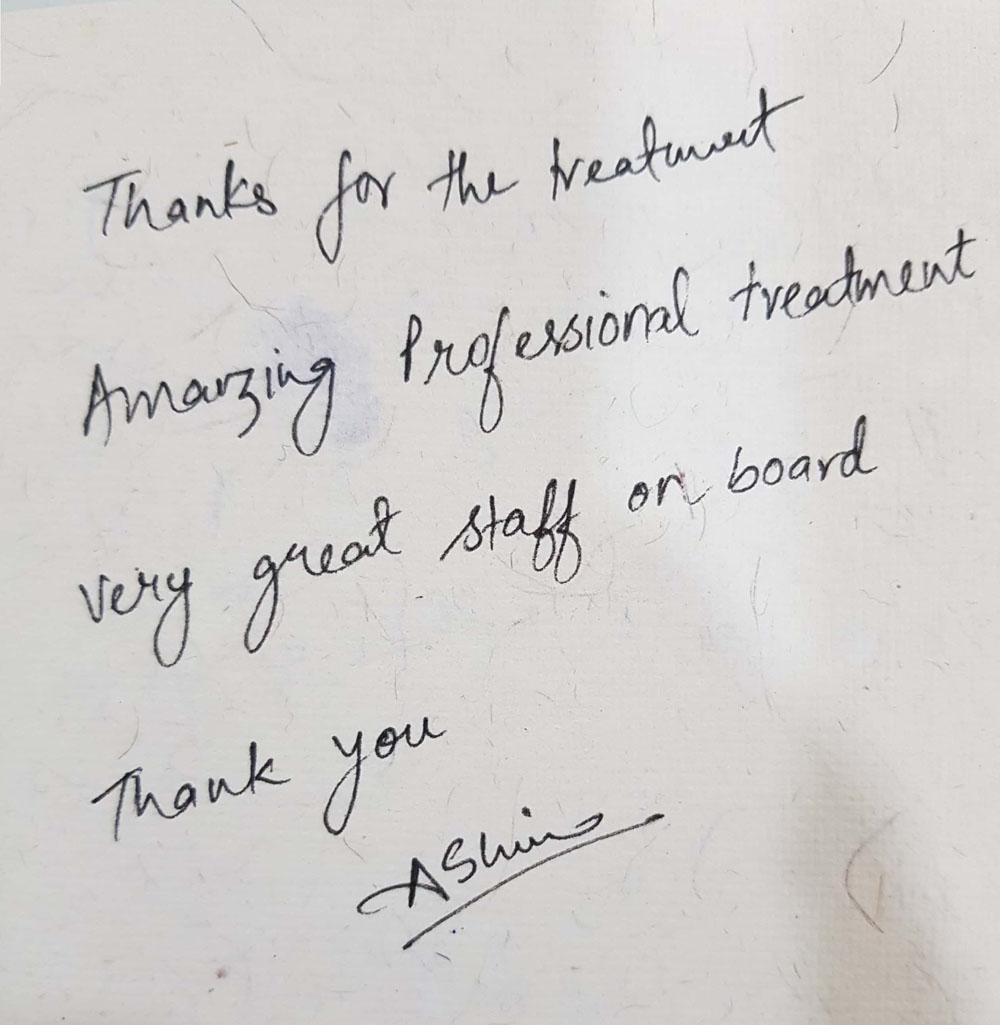 Thanks for the treatment
Amazing Professional treatment
very great staff on board
Thank you